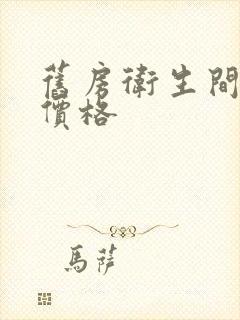 舊房衛生間
價格
馬薩